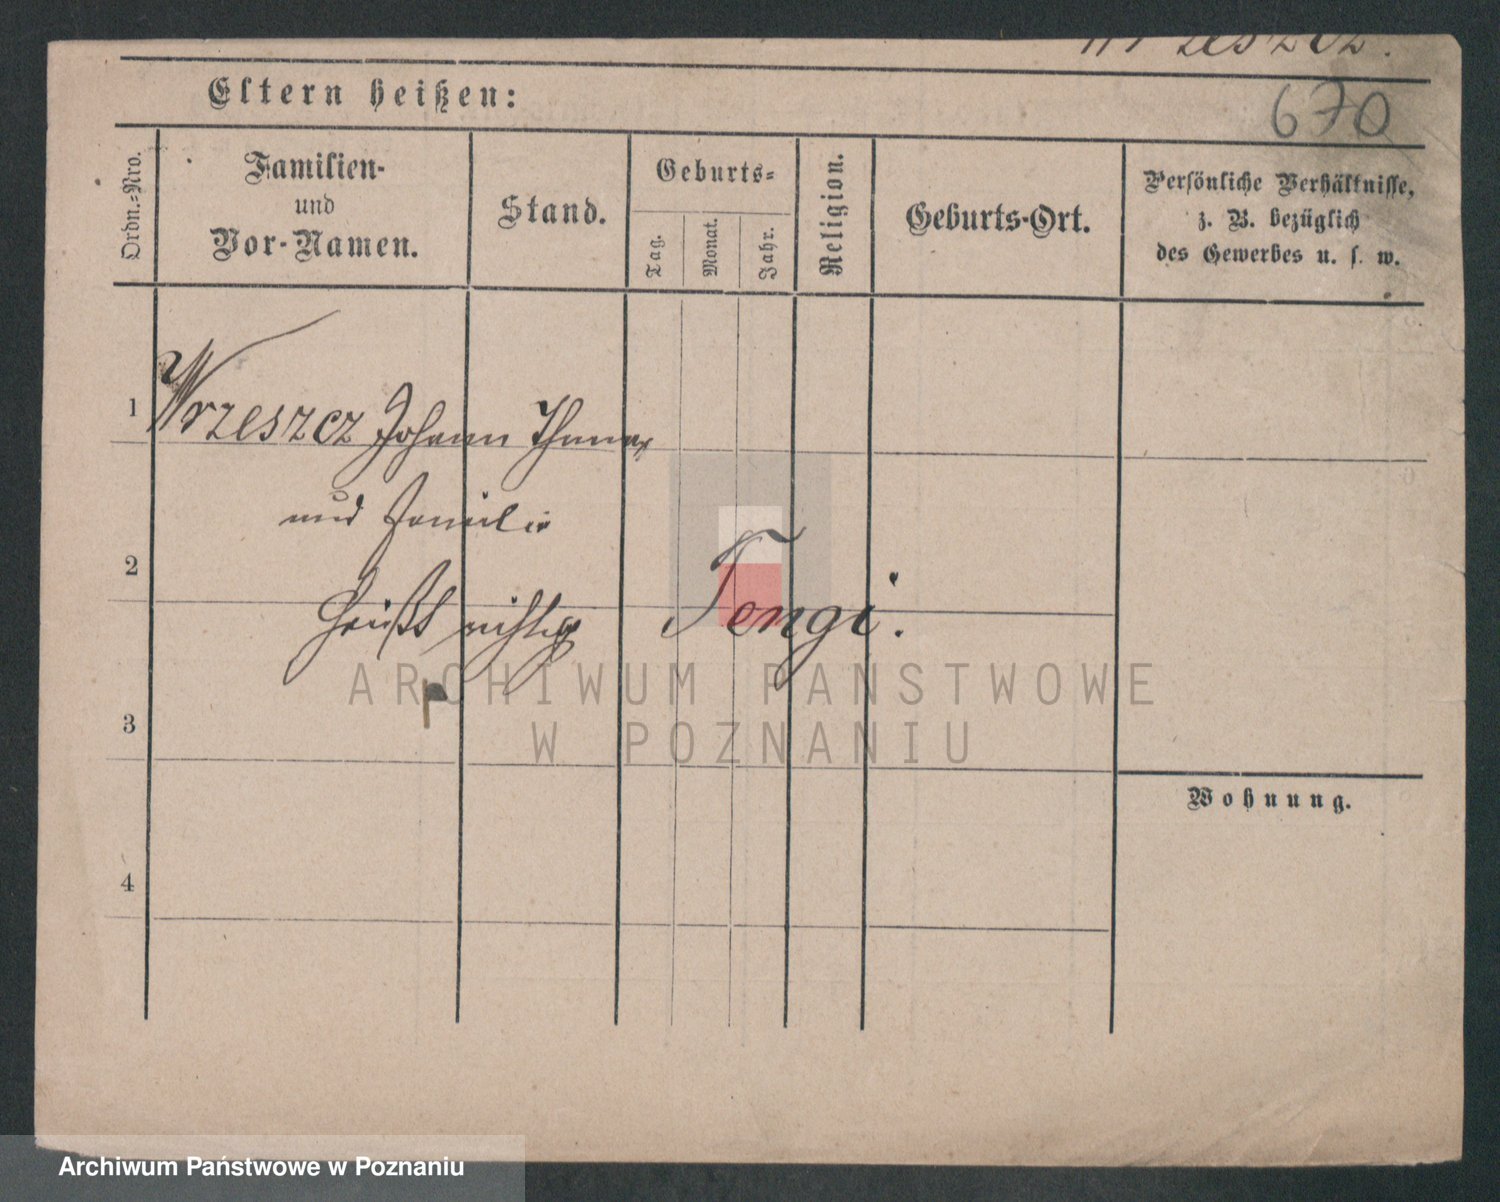 Wrzeszcz.
Eltern heißen:
670
Ordn.-Nro.
Familien-
und
Vor-Namen.
Stand.
Geburts-
Tag.
Monat.
Jahr.
Religion.
Geburts-Ort.
Persönliche Verhältnisse,
z. B. bezüglich
des Gewerbes u. s. w.
1
Wrzeszcz Johann Thomas
und Familie
2
heißt richtig Tengi.
ARCHIWUM PAŃSTWOWE
W POZNANIU
3
Wohnung.
4
Archiwum Państwowe w Poznaniu